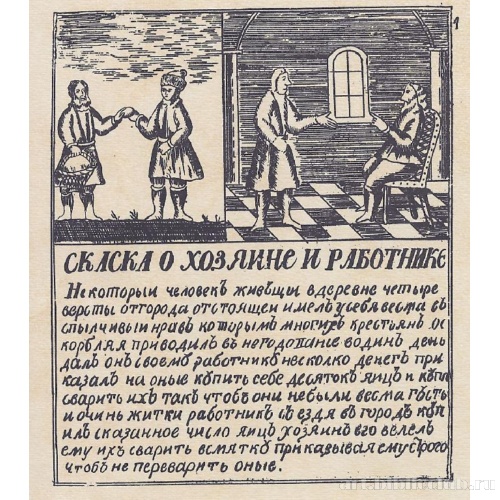 1
СКАСКА О ХОЗЯИНЕ И РАБОТНИКЕ
Некоторыи человекъ живѣщи вдеревне четыре
версты отгорода отстоящеи имелъ усебя весма с
спылчивыи нравъ которымъ многихъ крестьянъ ос
корбляя приводилъ въ негодование водинъ день
далъ онъ своему работнику несколко денегъ при
казалъ на оные купить себе десятокъ яицъ и
сварить ихъ такъ чтобъ они небыли весма густы
и очинь житки работникъ съездя въ городъ куп
илъ сказанное число яицъ хозяинъ его велелъ
ему ихъ сварить всмятку приказывая ему строго
чтобъ не переварить оные.